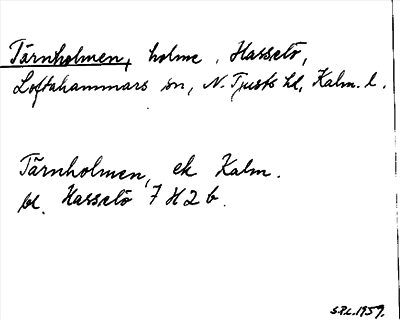 Tärnholmen, holme, Hasselö,
Loftahammars sn, N. Tjusts hd, Kalm. l.
Tärnholmen, ek Kalm.
bl. Hasselö 7 H 2 b.
S.P.L. 1959.